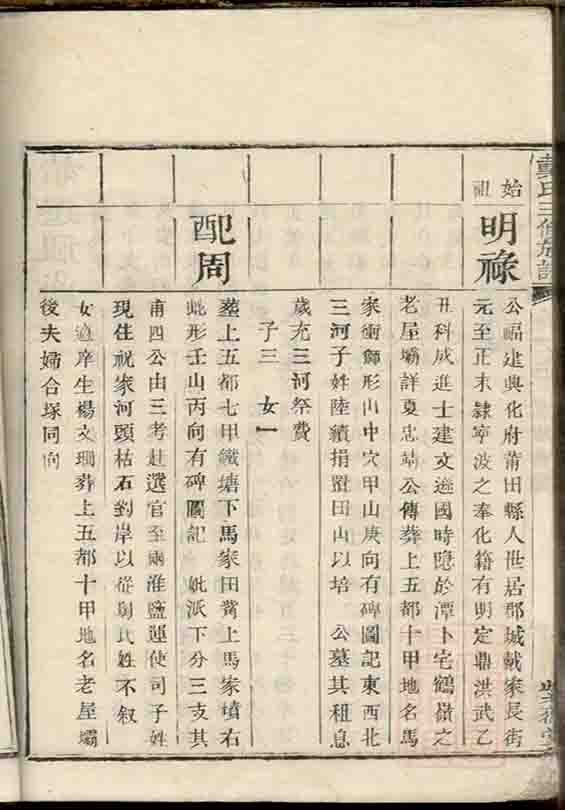 戴氏三修族譜
始祖
明祿
公福建興化府莆田縣人世居郡城戴家長街
元至正末隸寧波之奉化籍有明定鼎洪武乙
丑科成進士建文遜國時隱於潭卜宅鶴嶺之
老屋壩詳夏忠靖公傳葬上五都十甲地名馬
家衝獅形山中穴甲山庚向有碑圖記東西北
三河子姓陸續捐置田山以培 公墓其租息
歲充三河祭費
子三 女一
配周
墓上五都七甲鐵塘下馬家田觜上馬家墳右
虵形壬山丙向有碑圖記 妣派下分三支其
甫四公由三考赴選官至兩淮鹽運使司子姓
現住祝家河頭枯石到岸以從周氏姓不叙
女適庠生楊文珊葬上五都十甲地名老屋壩
後夫婦合塚同向